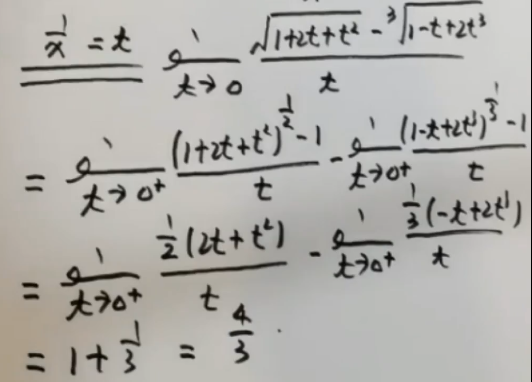 1/x = t  lim t→0 (√(1+2t+t²) - ³√(1-t+2t³))/t
= lim t→0⁺ ((1+2t+t²)^(1/2) - 1)/t - lim t→0⁺ ((1-t+2t³)^(1/3) - 1)/t
= lim t→0⁺ (1/2(2t+t²))/t - lim t→0⁺ (1/3(-t+2t³))/t
= 1 + 1/3 = 4/3.